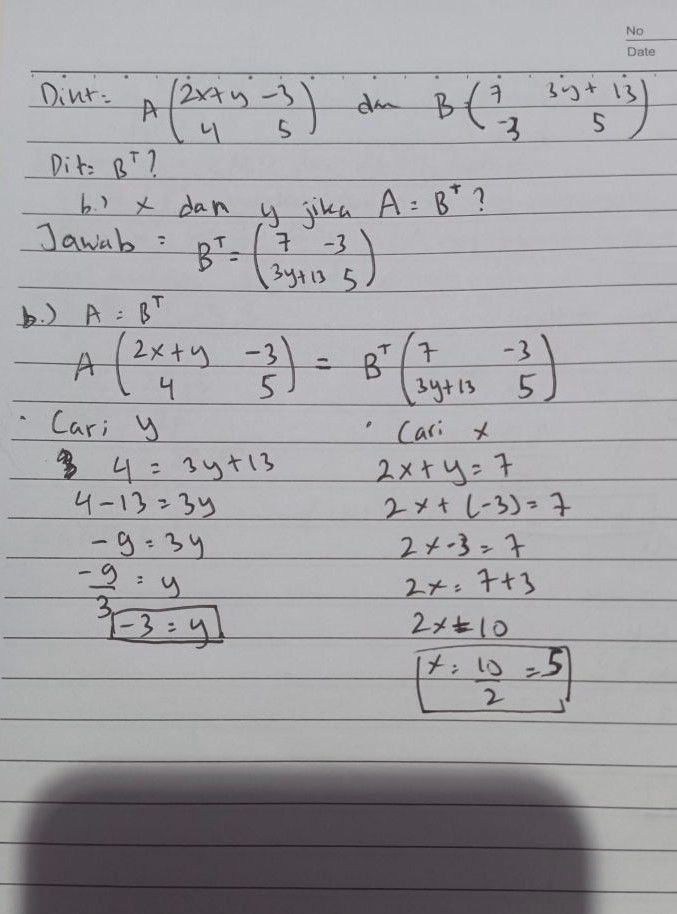 No
Date
Dikt: A (2x+y -3) dan B (7 3y+13)
4 5 -3 5
Dit: Bᵀ?
b.) x dan y jika A = Bᵀ?
Jawab : Bᵀ = (7 -3)
3y+13 5
b.) A = Bᵀ
A (2x+y -3) = Bᵀ (7 -3)
4 5 3y+13 5
· Cari y
4 = 3y+13
4-13 = 3y
-9 = 3y
-9/3 = y
-3 = y
· Cari x
2x+y = 7
2x+(-3) = 7
2x-3 = 7
2x = 7+3
2x = 10
x = 10/2 = 5